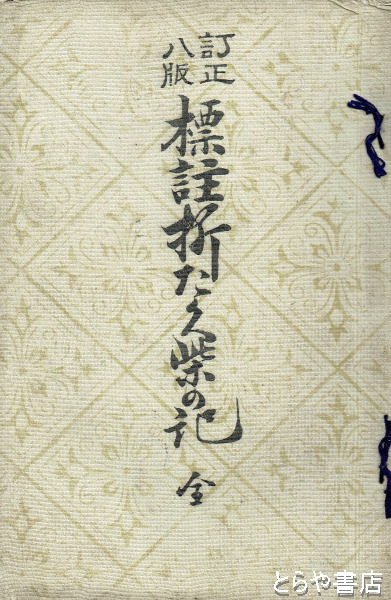 訂正
八版
標註折たく柴の記
全
とらや書店